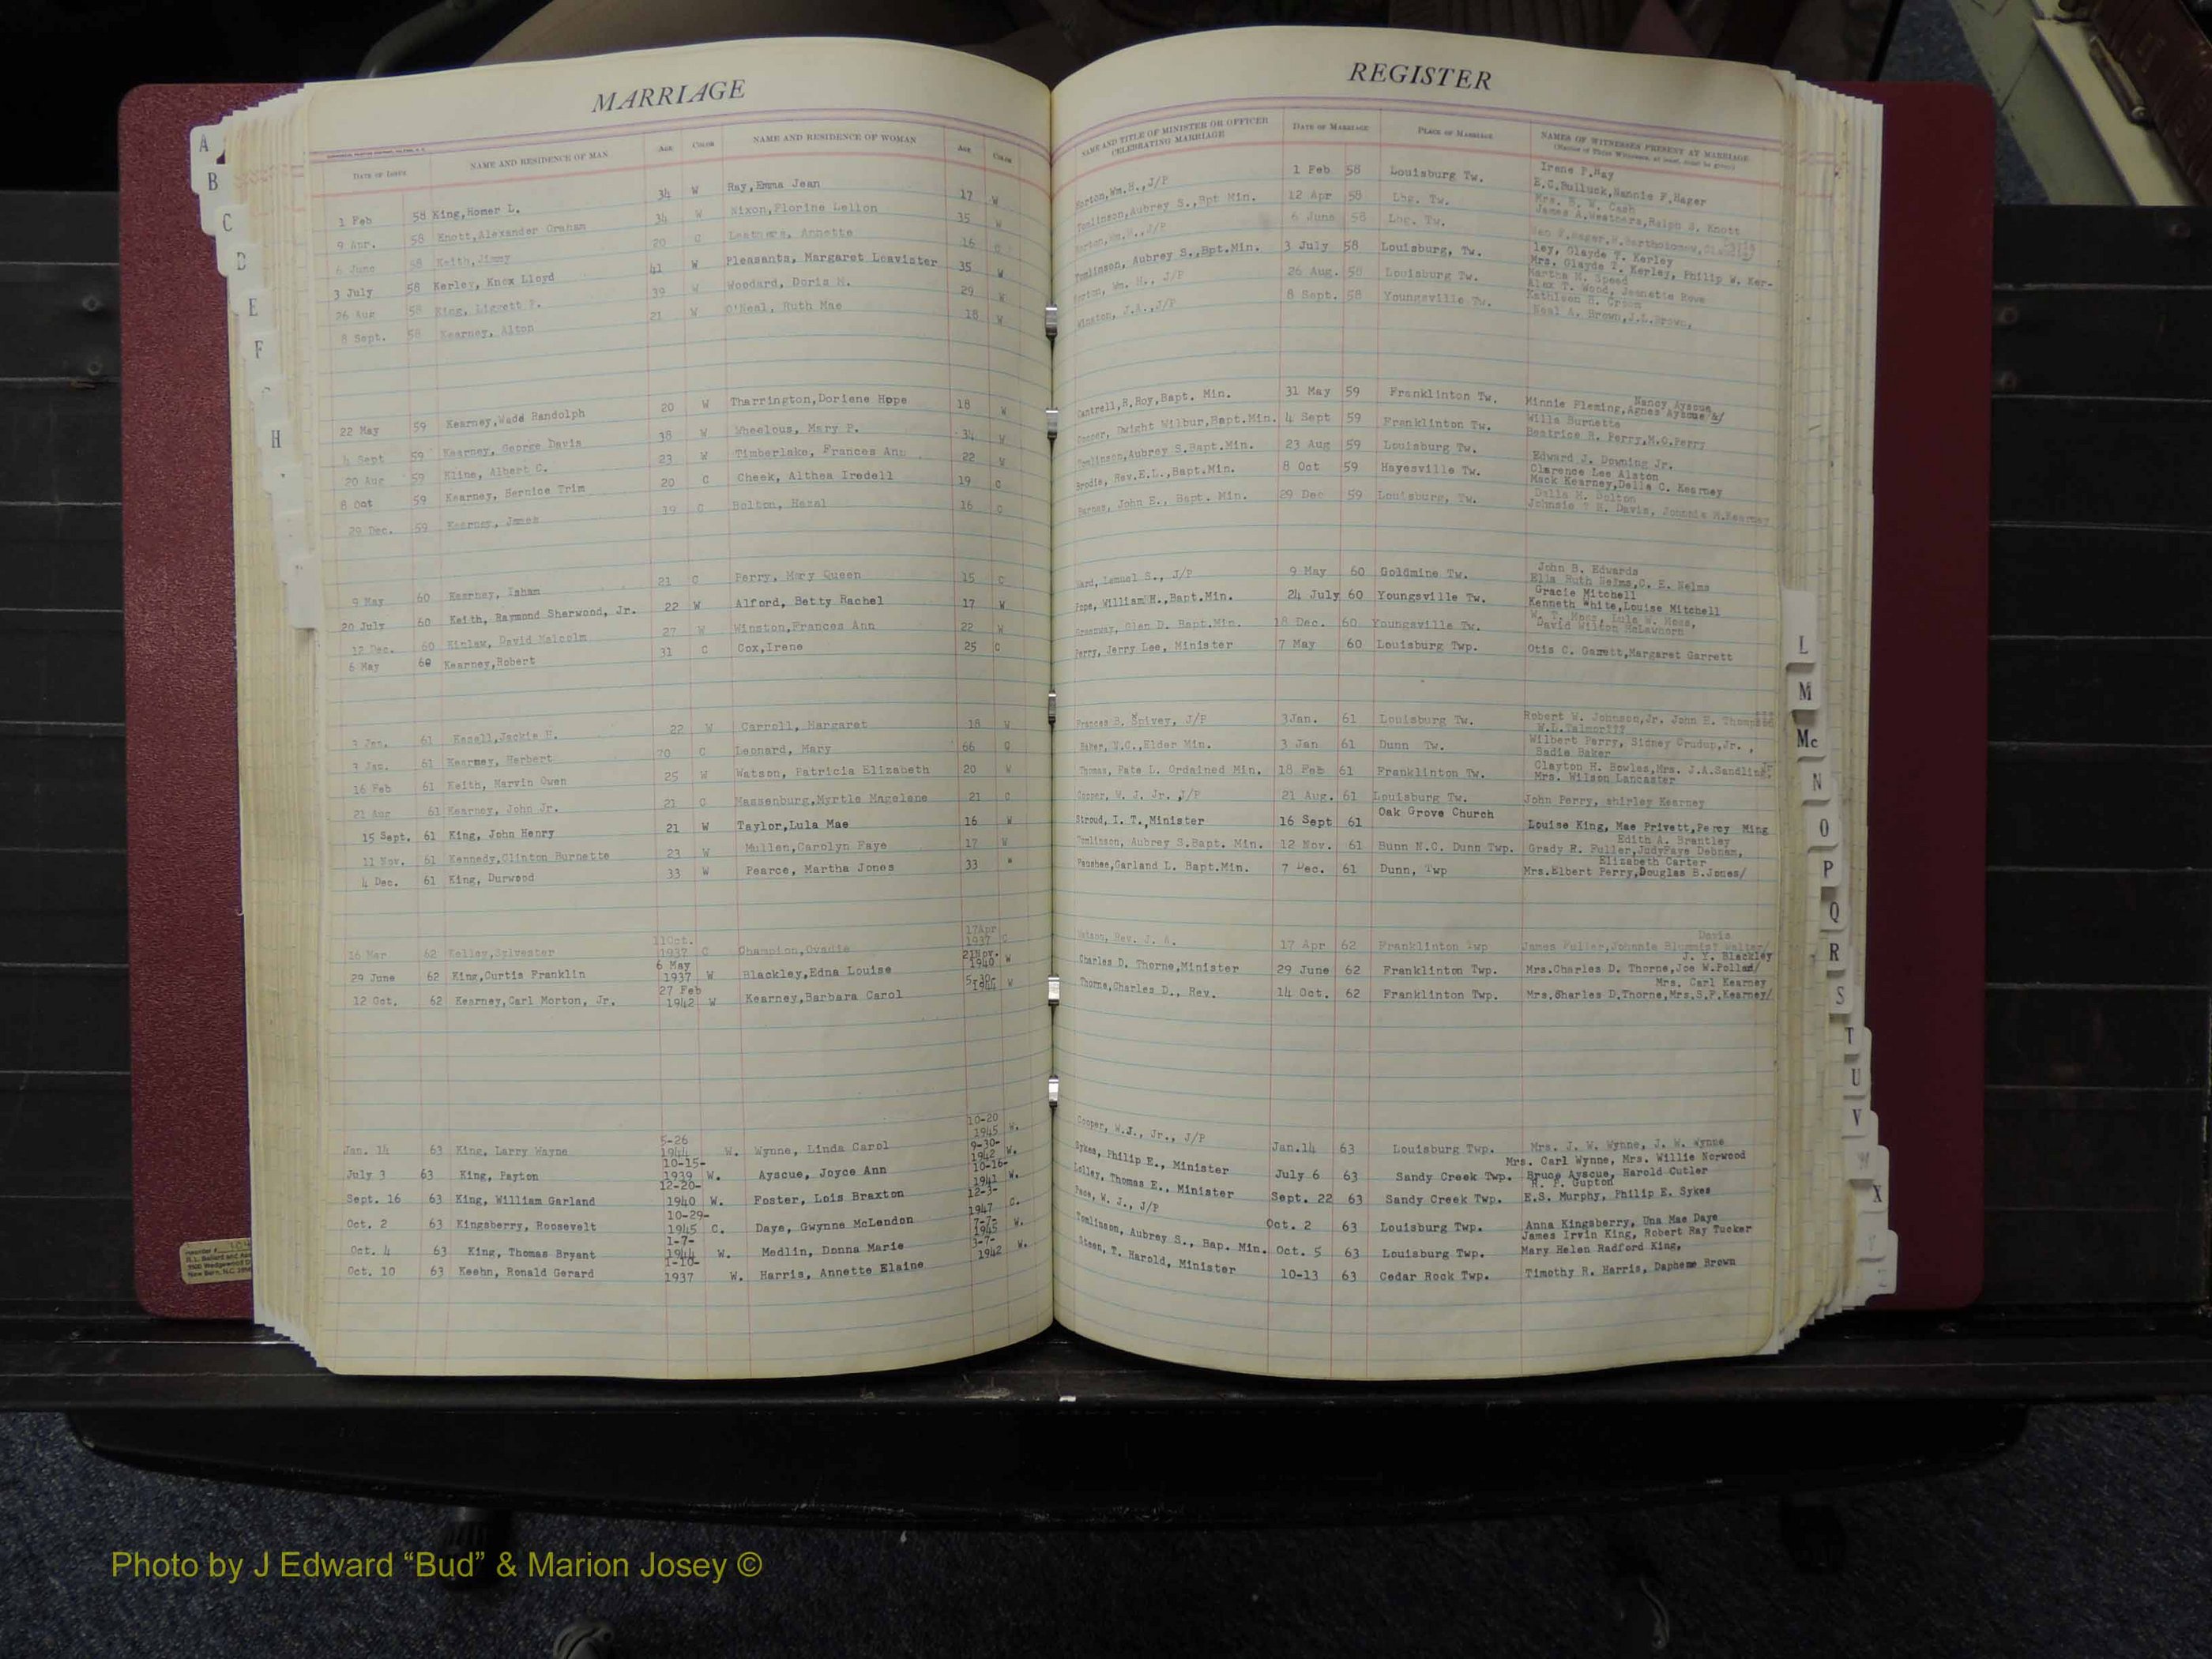 MARRIAGE
DATE OF ISSUE NAME AND RESIDENCE OF MAN AGE COLOR NAME AND RESIDENCE OF WOMAN AGE COLOR
1 Feb 58 King,Homer L. 34 W Ray,Emma Jean 17 W
9 Apr. 58 Knott,Alexander Graham 34 W Nixon,Florine Lellon 35 W
6 June 58 Keith,Jimmy 20 C Annette 16 C
3 July 58 Kerley, Knox Lloyd 41 W Pleasants, Margaret Leavister 35 W
26 Aug 58 King, Liggett P. 39 W Woodard, Doris M. 29 W
8 Sept. 58 Kearney, Alton 21 W O'Neal, Ruth Mae 18 W
22 May 59 Kearney,Wade Randolph 20 W Tharrington,Doriene Hope 18 W
4 Sept 59 Kearney, George Davis 38 W Wheelous, Mary P. 34 W
20 Aug 59 Kline, Albert C. 23 W Timberlake, Frances Ann 22 W
8 Oct 59 Kearney, Bernice Trim 20 C Cheek, Althea Iredell 19 C
29 Dec. 59 Kearney, James 39 C Bolton, Hazel 16 C
9 May 60 Kearney, Isham 21 C Perry, Mary Queen 15 C
20 July 60 Keith, Raymond Sherwood, Jr. 22 W Alford, Betty Rachel 17 W
12 Dec. 60 Kinlaw, David Malcolm 27 W Winston,Frances Ann 22 W
6 May 60 Kearney,Robert 31 C Cox,Irene 25 C
3 Jan. 61 Jackie H. 22 W Carroll, Margaret 18 W
3 Jan. 61 Kearney, Herbert 70 C Leonard, Mary 66 C
16 Feb 61 Keith, Marvin Owen 25 W Watson, Patricia Elizabeth 20 W
21 Aug 61 Kearney, John Jr. 21 C Massenburg,Myrtle Magelene 21 C
15 Sept. 61 King, John Henry 21 W Taylor,Lula Mae 16 W
11 Nov. 61 Kennedy,Clinton Burnette 23 W Mullen,Carolyn Faye 17 W
4 Dec. 61 King, Durwood 33 W Pearce, Martha Jones 33 W
16 Mar 62 Kelley,Sylvester 11Oct. 1937 C Champion,Ovadie 17Apr 1937 C
29 June 62 King,Curtis Franklin 6 May 1937 W Blackley,Edna Louise 21Nov. 1940 W
12 Oct. 62 Kearney,Carl Morton, Jr. 27 Feb 1942 W Kearney,Barbara Carol 1944 W
Jan. 14 63 King, Larry Wayne 5-26 1944 W. Wynne, Linda Carol 10-20 1945 W.
July 3 63 King, Payton 10-15- 1939 W. Ayscue, Joyce Ann 9-30- 1942 W.
Sept. 16 63 King, William Garland 12-20- 1940 W. Foster, Lois Braxton 10-16- 1941 W.
Oct. 2 63 Kingsberry, Roosevelt 10-29- 1945 C. Daye, Gwynne McLendon 12-3- 1947 C.
Oct. 4 63 King, Thomas Bryant 1-7- 1944 W. Medlin, Donna Marie 7-7- 1945 W.
Oct. 10 63 Keehn, Ronald Gerard 1-10- 1937 W. Harris, Annette Elaine 3-7- 1942 W.
REGISTER
NAME AND TITLE OF MINISTER OR OFFICER CELEBRATING MARRIAGE DATE OF MARRIAGE PLACE OF MARRIAGE NAMES OF WITNESSES PRESENT AT MARRIAGE
(Names of Three Witnesses, at least, must be given)
Horton,Wm.H.,J/P 1 Feb 58 Louisburg Tw. Irene P.Hay
E.C.Bulluck,Nannie F.Hager
Tomlinson,Aubrey S.,Bpt Min. 12 Apr 58 Lbg. Tw. Mrs. B. W. Cash
James A.Weathers,Ralph S. Knott
Horton,Wm.H.,J/P 6 June 58 Lbg. Tw.
Tomlinson, Aubrey S.,Bpt.Min. 3 July 58 Louisburg, Tw. ley, Glayde T. Kerley
Mrs. Glayde T. Kerley, Philip W. Ker-
Horton, Wm. H., J/P 26 Aug. 58 Louisburg Tw. Martha M. Speed
Alex T. Wood, Jeanette Rowe
Winston, J.A.,J/P 8 Sept. 58 Youngsville Tw. Kathleen H. Green
Neal A. Brown,J.L.Brown,
Cantrell,R.Roy,Bapt. Min. 31 May 59 Franklinton Tw. Nancy Ayscue
Minnie Fleming,Agnes Ayscue &/
Cooper, Dwight Wilbur,Bapt.Min. 4 Sept 59 Franklinton Tw. Willa Burnette
Beatrice R. Perry,M.O.Perry
Tomlinson,Aubrey S.Bapt.Min. 23 Aug 59 Louisburg Tw. Edward J. Downing Jr.
Brodie, Rev.E.L.,Bapt.Min. 8 Oct 59 Hayesville Tw. Clarence Lee Alston
Mack Kearney,Della C. Kearney
Barnes, John E., Bapt. Min. 29 Dec 59 Louisburg, Tw. Della M. Bolton
Johnsie H. Davis, Johnnie M.Kearney
Ward, Lemuel S., J/P 9 May 60 Goldmine Tw. John B. Edwards
Ella Ruth Nelms,C. E. Nelms
Pope, William H.,Bapt.Min. 24 July 60 Youngsville Tw. Gracie Mitchell
Kenneth White,Louise Mitchell
Greenway, Glen D. Bapt.Min. 18 Dec. 60 Youngsville Tw. W. T. Moss, Lula W. Moss,
David Wilson McLawhorn
Perry, Jerry Lee, Minister 7 May 60 Louisburg Twp. Otis C. Garrett,Margaret Garrett
Frances B. Spivey, J/P 3Jan. 61 Louisburg Tw. Robert W. Johnson,Jr. John E.
W.L.Talmor???
Baker, N.C.,Elder Min. 3 Jan 61 Dunn Tw. Wilbert Perry, Sidney Crudup,Jr. ,
Sadie Baker
Thomas, Pate L. Ordained Min. 18 Feb 61 Franklinton Tw. Clayton H. Bowles,Mrs. J.A.Sandling,
Mrs. Wilson Lancaster
Cooper, W. J. Jr. ,J/P 21 Aug. 61 Louisburg Tw. John Perry, shirley Kearney
Stroud, I. T.,Minister 16 Sept 61 Oak Grove Church Louise King, Mae Privett,Percy Ming
Tomlinson, Aubrey S.Bapt. Min. 12 Nov. 61 Bunn N.C. Dunn Twp. Edith A. Brantley
Grady R. Fuller,JudyFaye Debnam,
Faushee,Garland L. Bapt.Min. 7 Dec. 61 Dunn, Twp Elizabeth Carter
Mrs.Elbert Perry,Douglas B.Jones/
Watson, Rev. J. A. 17 Apr 62 Franklinton Twp Davis
James Fuller,Johnnie Walter/
Charles D. Thorne,Minister 29 June 62 Franklinton Twp. J. Y. Blackley
Mrs.Charles D. Thorne,Joe W.Pollad/
Thorne,Charles D., Rev. 14 Oct. 62 Franklinton Twp. Mrs. Carl Kearney
Mrs,Sharles D.Thorne,Mrs.S.P.Kearney/
Cooper, W.J., Jr., J/P Jan.14 63 Louisburg Twp. Mrs. J. W. Wynne, J. W. Wynne
Mrs. Carl Wynne, Mrs. Willie Norwood
Sykes, Philip E., Minister July 6 63 Sandy Creek Twp. Bruce Ayscue, Harold Cutler
R. P. Gupton
Lolley, Thomas E., Minister Sept. 22 63 Sandy Creek Twp. E.S. Murphy, Philip E. Sykes
Pace, W. J., J/P Oct. 2 63 Louisburg Twp. Anna Kingsberry, Una Mae Daye
James Irvin King, Robert Ray Tucker
Tomlinson, Aubrey S., Bap. Min. Oct. 5 63 Louisburg Twp. Mary Helen Radford King,
Steen, T. Harold, Minister 10-13 63 Cedar Rock Twp. Timothy R. Harris, Dapheme Brown
A
B
C
D
E
F
H
L
M
Mc
N
O
P
Q
R
S
T
U
V
X
Photo by J Edward “Bud” & Marion Josey ©